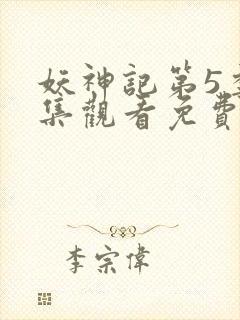 妖神記第5
集觀看免費
李宗偉